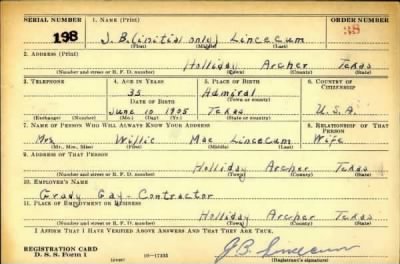 SERIAL NUMBER 1. NAME (Print) ORDER NUMBER
198 J.B. (initial only) Lincecum 38
(First) (Middle) (Last)
2. ADDRESS (Print)
Holliday Archer Texas
(Number and street or R. F. D. number) (Town) (County) (State)
3. TELEPHONE 4. AGE IN YEARS 5. PLACE OF BIRTH 6. COUNTRY OF CITIZENSHIP
35 Admiral
DATE OF BIRTH (Town or county)
June 10 1905 Texas U.S.A.
(Exchange) (Number) (Mo.) (Day) (Yr.) (State or country)
7. NAME OF PERSON WHO WILL ALWAYS KNOW YOUR ADDRESS 8. RELATIONSHIP OF THAT PERSON
Mrs Willie Mae Lincecum Wife
(Mr., Mrs., Miss) (First) (Middle) (Last)
9. ADDRESS OF THAT PERSON
Holliday Archer Texas
(Number and street or R. F. D. number) (Town) (County) (State)
10. EMPLOYER'S NAME
Grady Gay - Contractor
11. PLACE OF EMPLOYMENT OR BUSINESS
Holliday Archer Texas
(Number and street or R. F. D. number) (Town) (County) (State)
I AFFIRM THAT I HAVE VERIFIED ABOVE ANSWERS AND THAT THEY ARE TRUE.
REGISTRATION CARD J B Lincecum
D. S. S. Form 1 (over) 16—17105